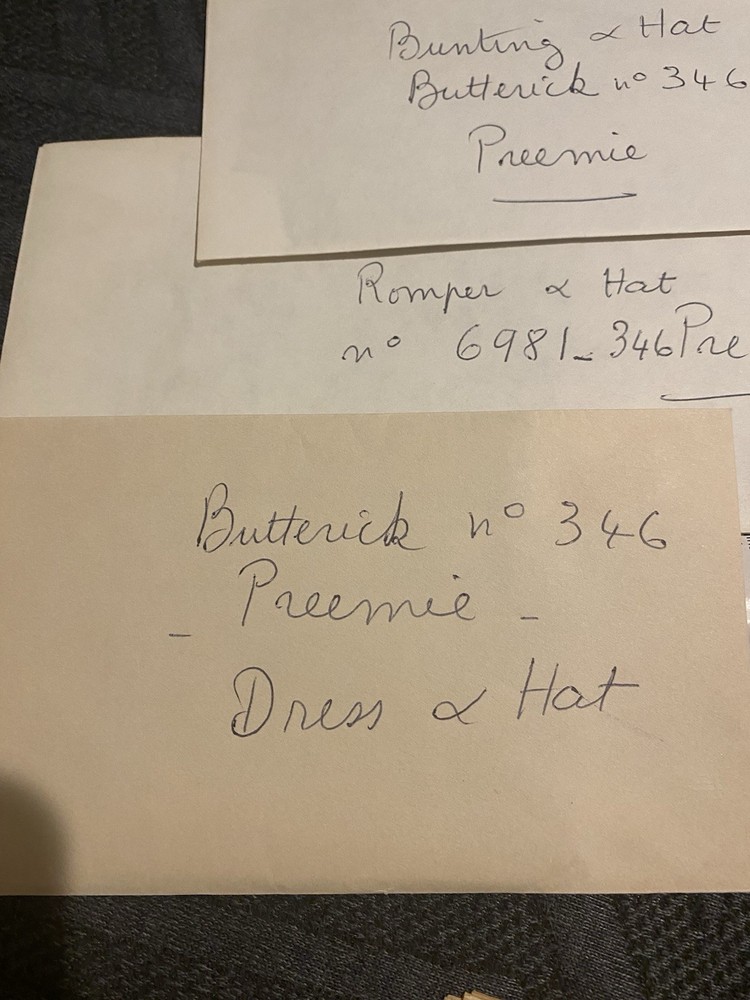 Bunting & Hat
Butterick nº 346
Preemie
Romper & Hat
nº 6981_346 Pre
Butterick nº 346
_ Preemie _
Dress & Hat